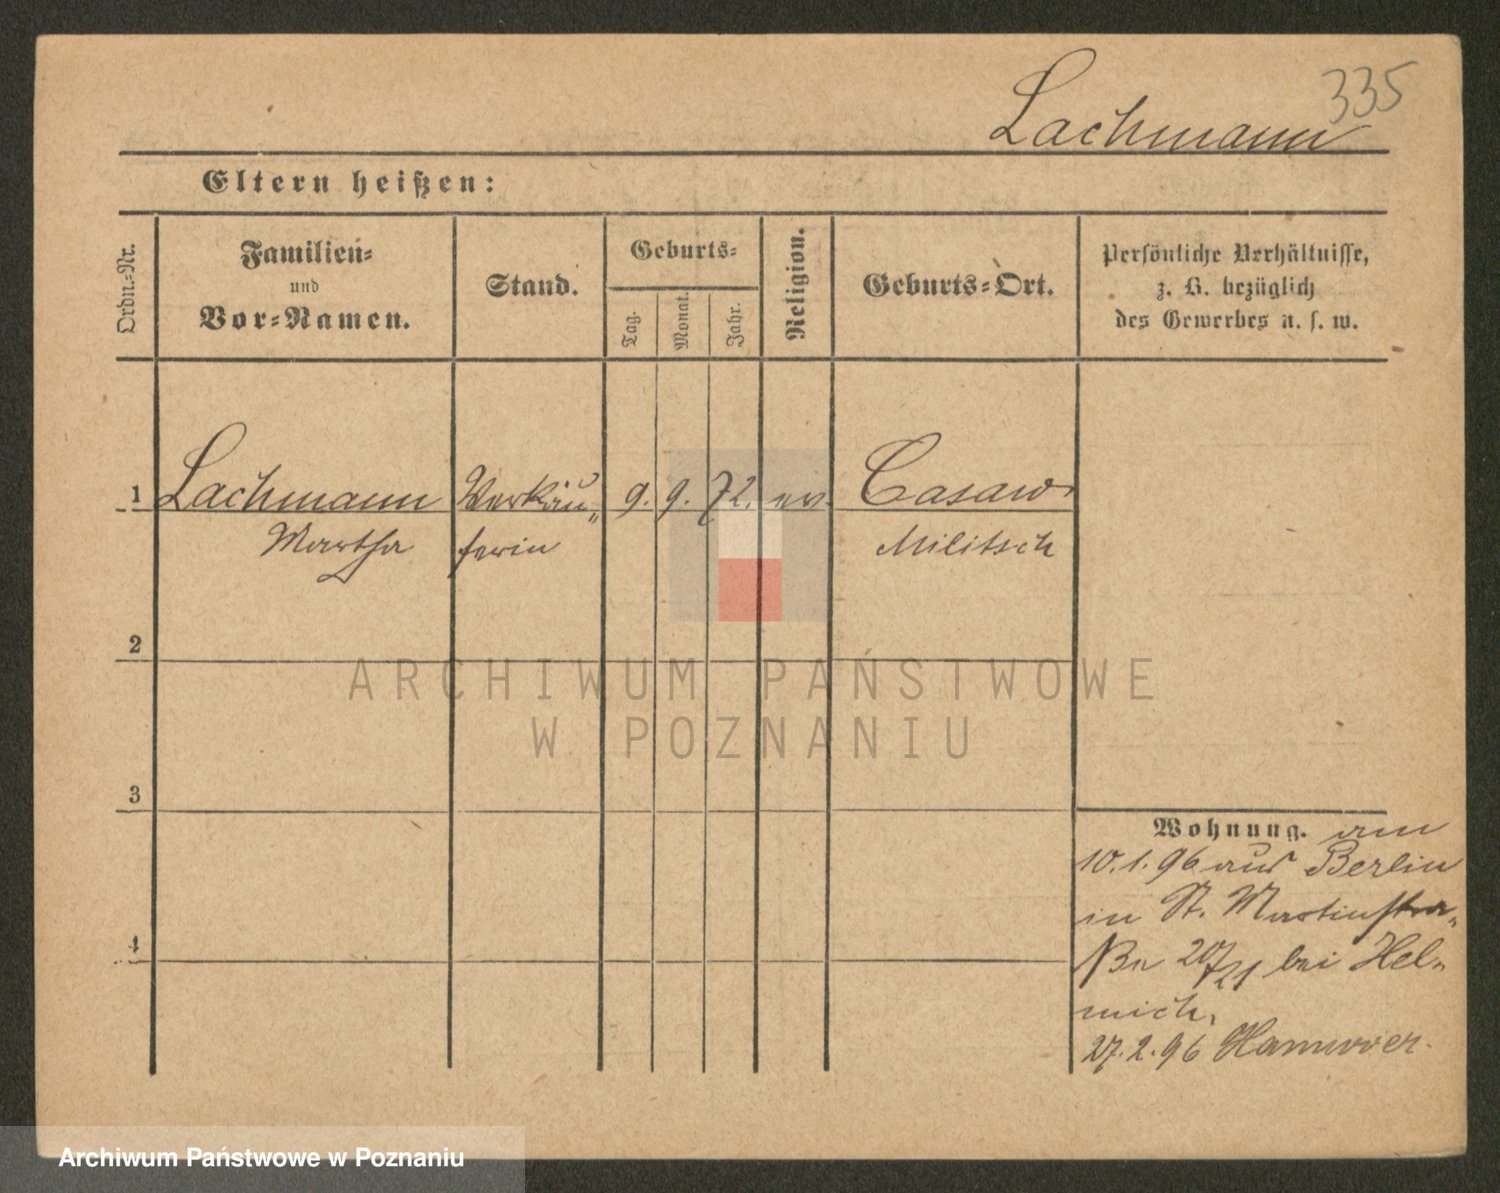 335
Lachmann
Eltern heißen:
Ordn.-Nr.
Familien-
und
Vor-Namen.
Stand.
Geburts-
Tag.
Monat.
Jahr.
Religion.
Geburts-Ort.
Persönliche Verhältnisse,
z. B. bezüglich
des Gewerbes u. s. w.
1 Lachmann Verkäu- 9. 9. 72. ev. Casawe
Martha ferin Militsch
2
3
4
Wohnung. am
10.1.96 aus Berlin
in St. Martinstra-
ße 20/21 bei Hel-
mich,
27.2.96 Hannover.
ARCHIWUM PAŃSTWOWE
W POZNANIU
Archiwum Państwowe w Poznaniu